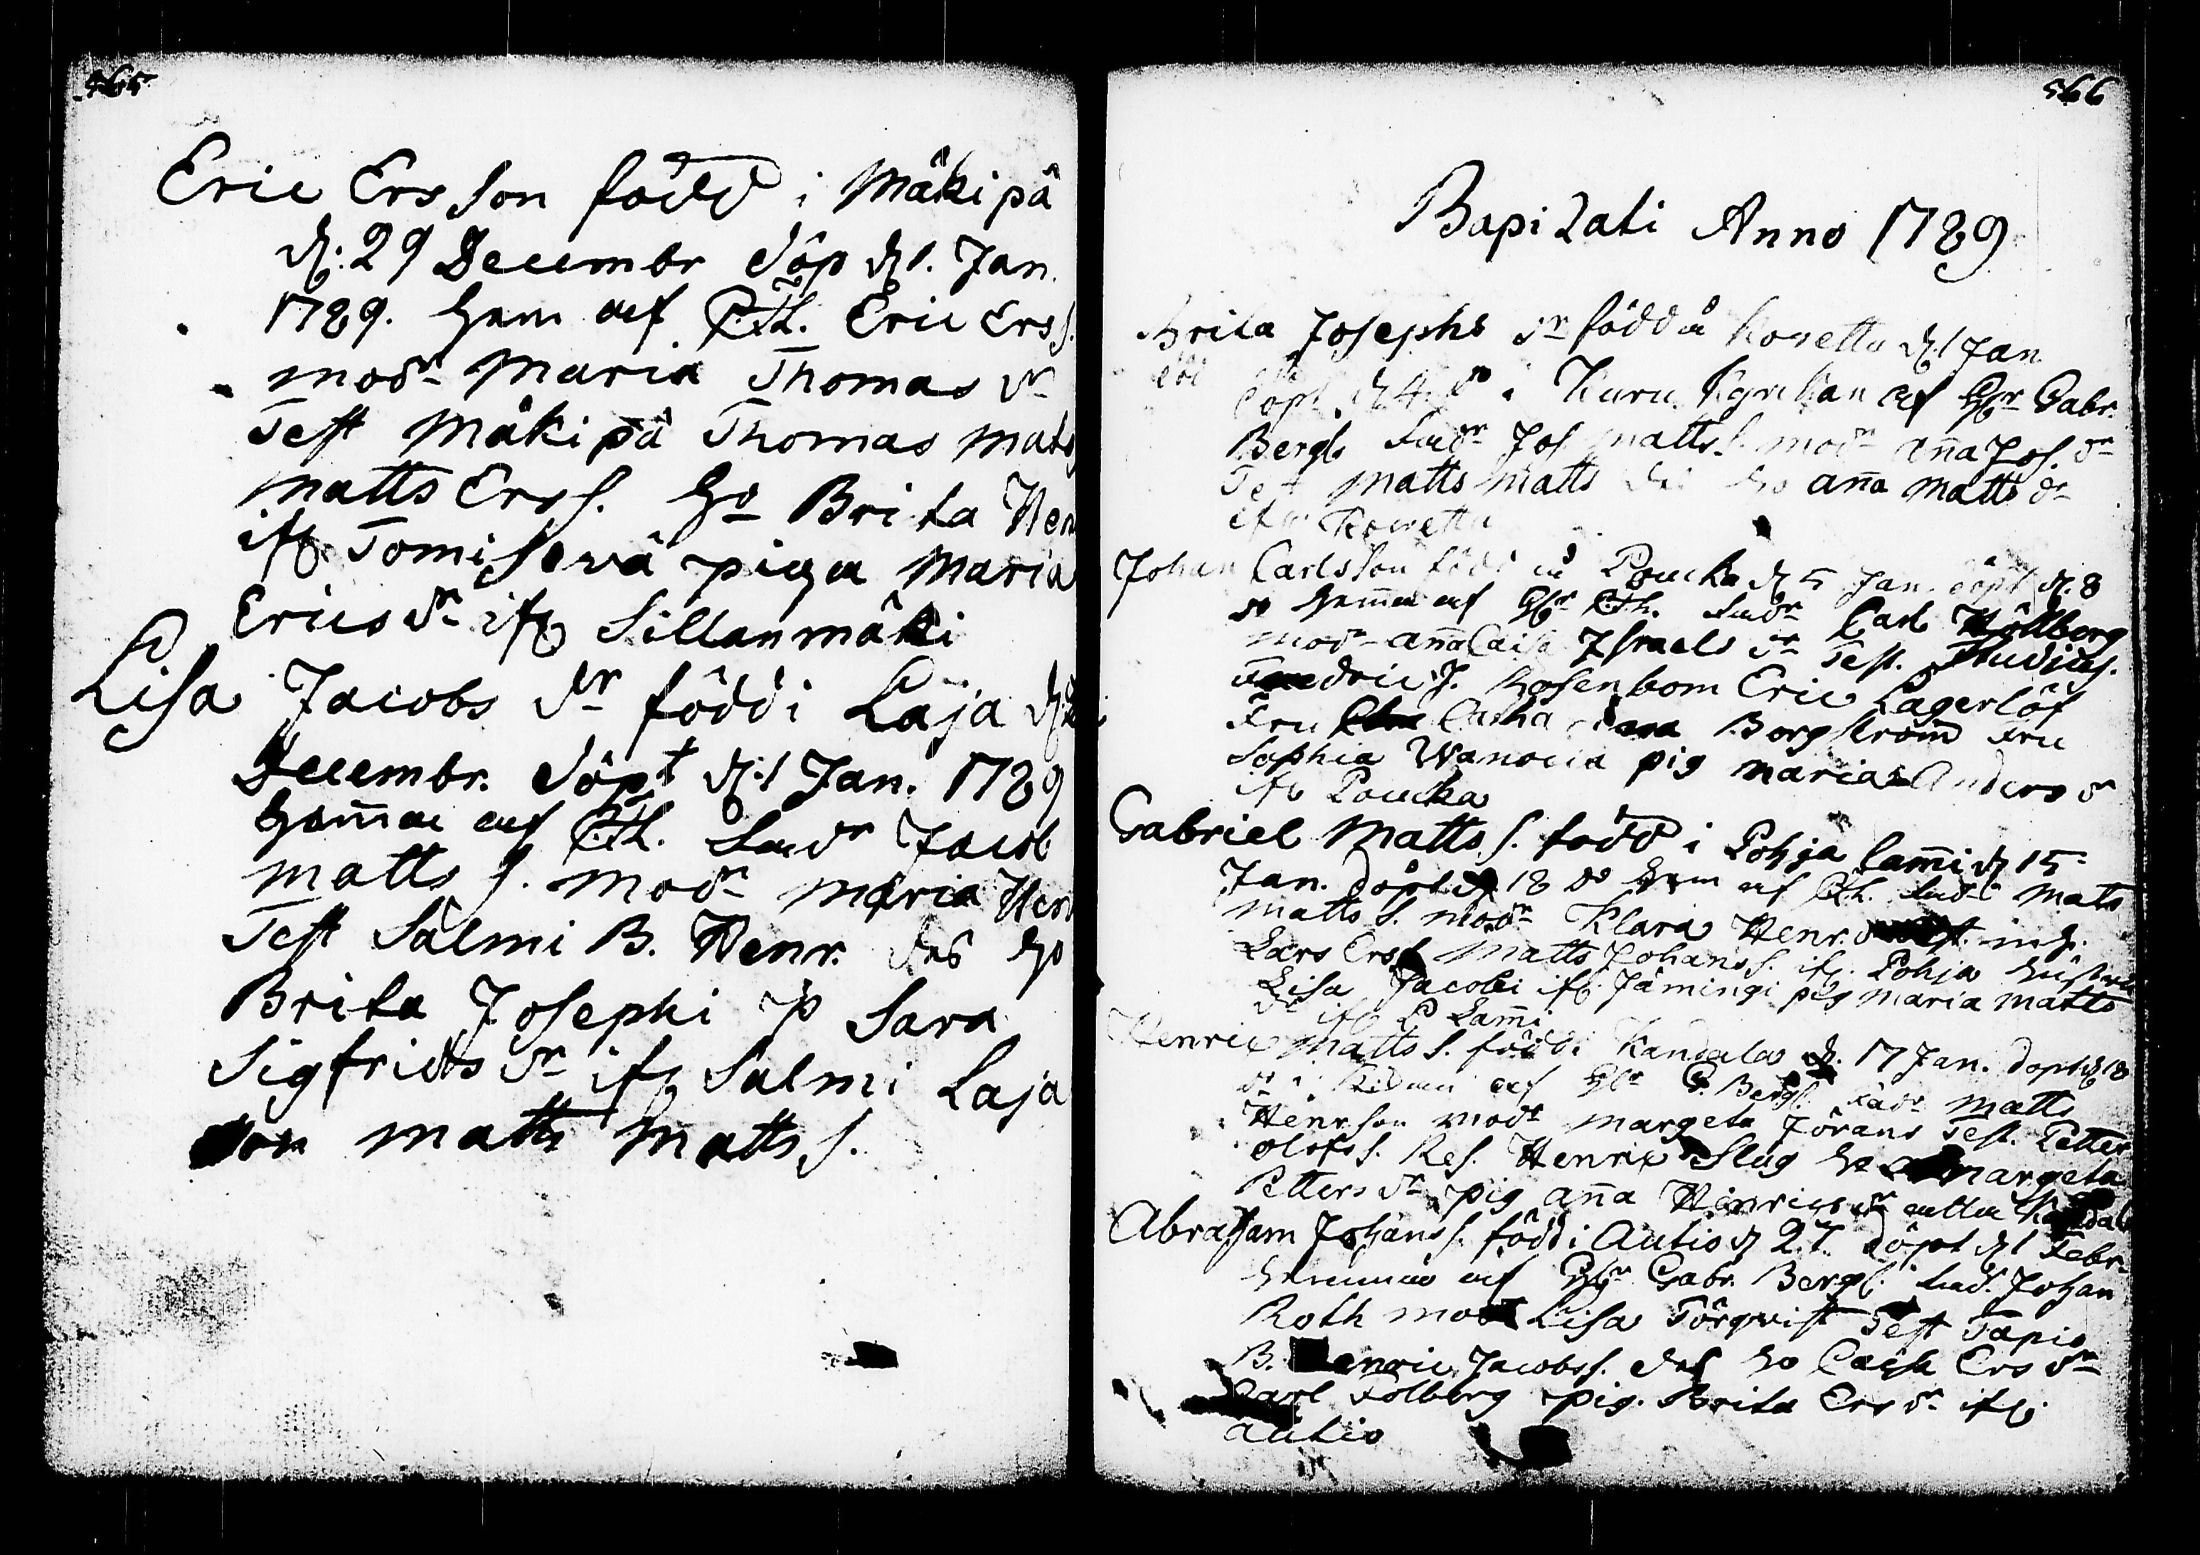 565
Eric Ersson född i Mäkipä
d. 29 Decembr döp d 1. Jan.
1789. hem af P.Th. Eric Erss.
modr Maria Thomas dr
Test Mäkipä Thomas Mats
Matts Erss. ho Brita Hen
ifr Tomisevä piga Maria
Erics dr ifr Sillanmäki
Lisa Jacobs dr född i Laja d.
Decembr. döpt d. 1 Jan. 1789
hemma af P.Th. fadr Jacob
Matts s. modr Maria Hen
Test Salmi B. Henr. des ho
Brita Josephi p Sara
Sigfrids dr ifr Salmi Laja
Matts Matts s.
566
Bapizati Anno 1789
Brita Josephs dr född å Kovetta d. 1 Jan
döpt d. 4. do i Kuru Kyrkan af Hr Gabr.
Bergh fadr Jos. Matts s. modr Aña Jos. dr
Test Matts Matts ho Aña Matts dr
ifr Kovetta
Johan Carlsson född å Poucka d 5 Jan. döpt d. 8
do hemma af Hr P.Th. fadr Carl Höllberg
modr Aña Caisa Israels dr Test. Studios.
Fredric J. Rosenbom Eric Lagerlöf
Fru Borgström Fru
Sophia Wanocia pig Maria Anders dr
ifr Poucka
Gabriel Matts s. född i Pohja Lam̃i d 15
Jan. döpt d 18 do hem af P.Th. fadr Mats
Matts s. modr Klara Henr. inh.
Lars Erss Matts Johans s. ifr. Pohja hustru
Lisa Jacobi ifr. Jämingi pig Maria Matts
dr ifr P Lam̃i
Henric Matts s. född i Kandala d. 17 Jan. döpt d 18
do i af Hr G. Bergh fadr Matts
Henrson modr Margeta Jörans Test. Petter
Olofs s. Res. Henric Slug ho Margeta
Petters dr pig Aña Hinrics dr alla
Abraham Johans s. född i Autio d 27. döpt d 1 Febr.
hemma af Hr Gabr. Bergh fadr Johan
Roth modr Lisa Törqvist Test Tapio
B. Henric Jacobss. des ho Caisa Ers dr
Carl Folberg pig. Brita Ers dr ifr
Autio